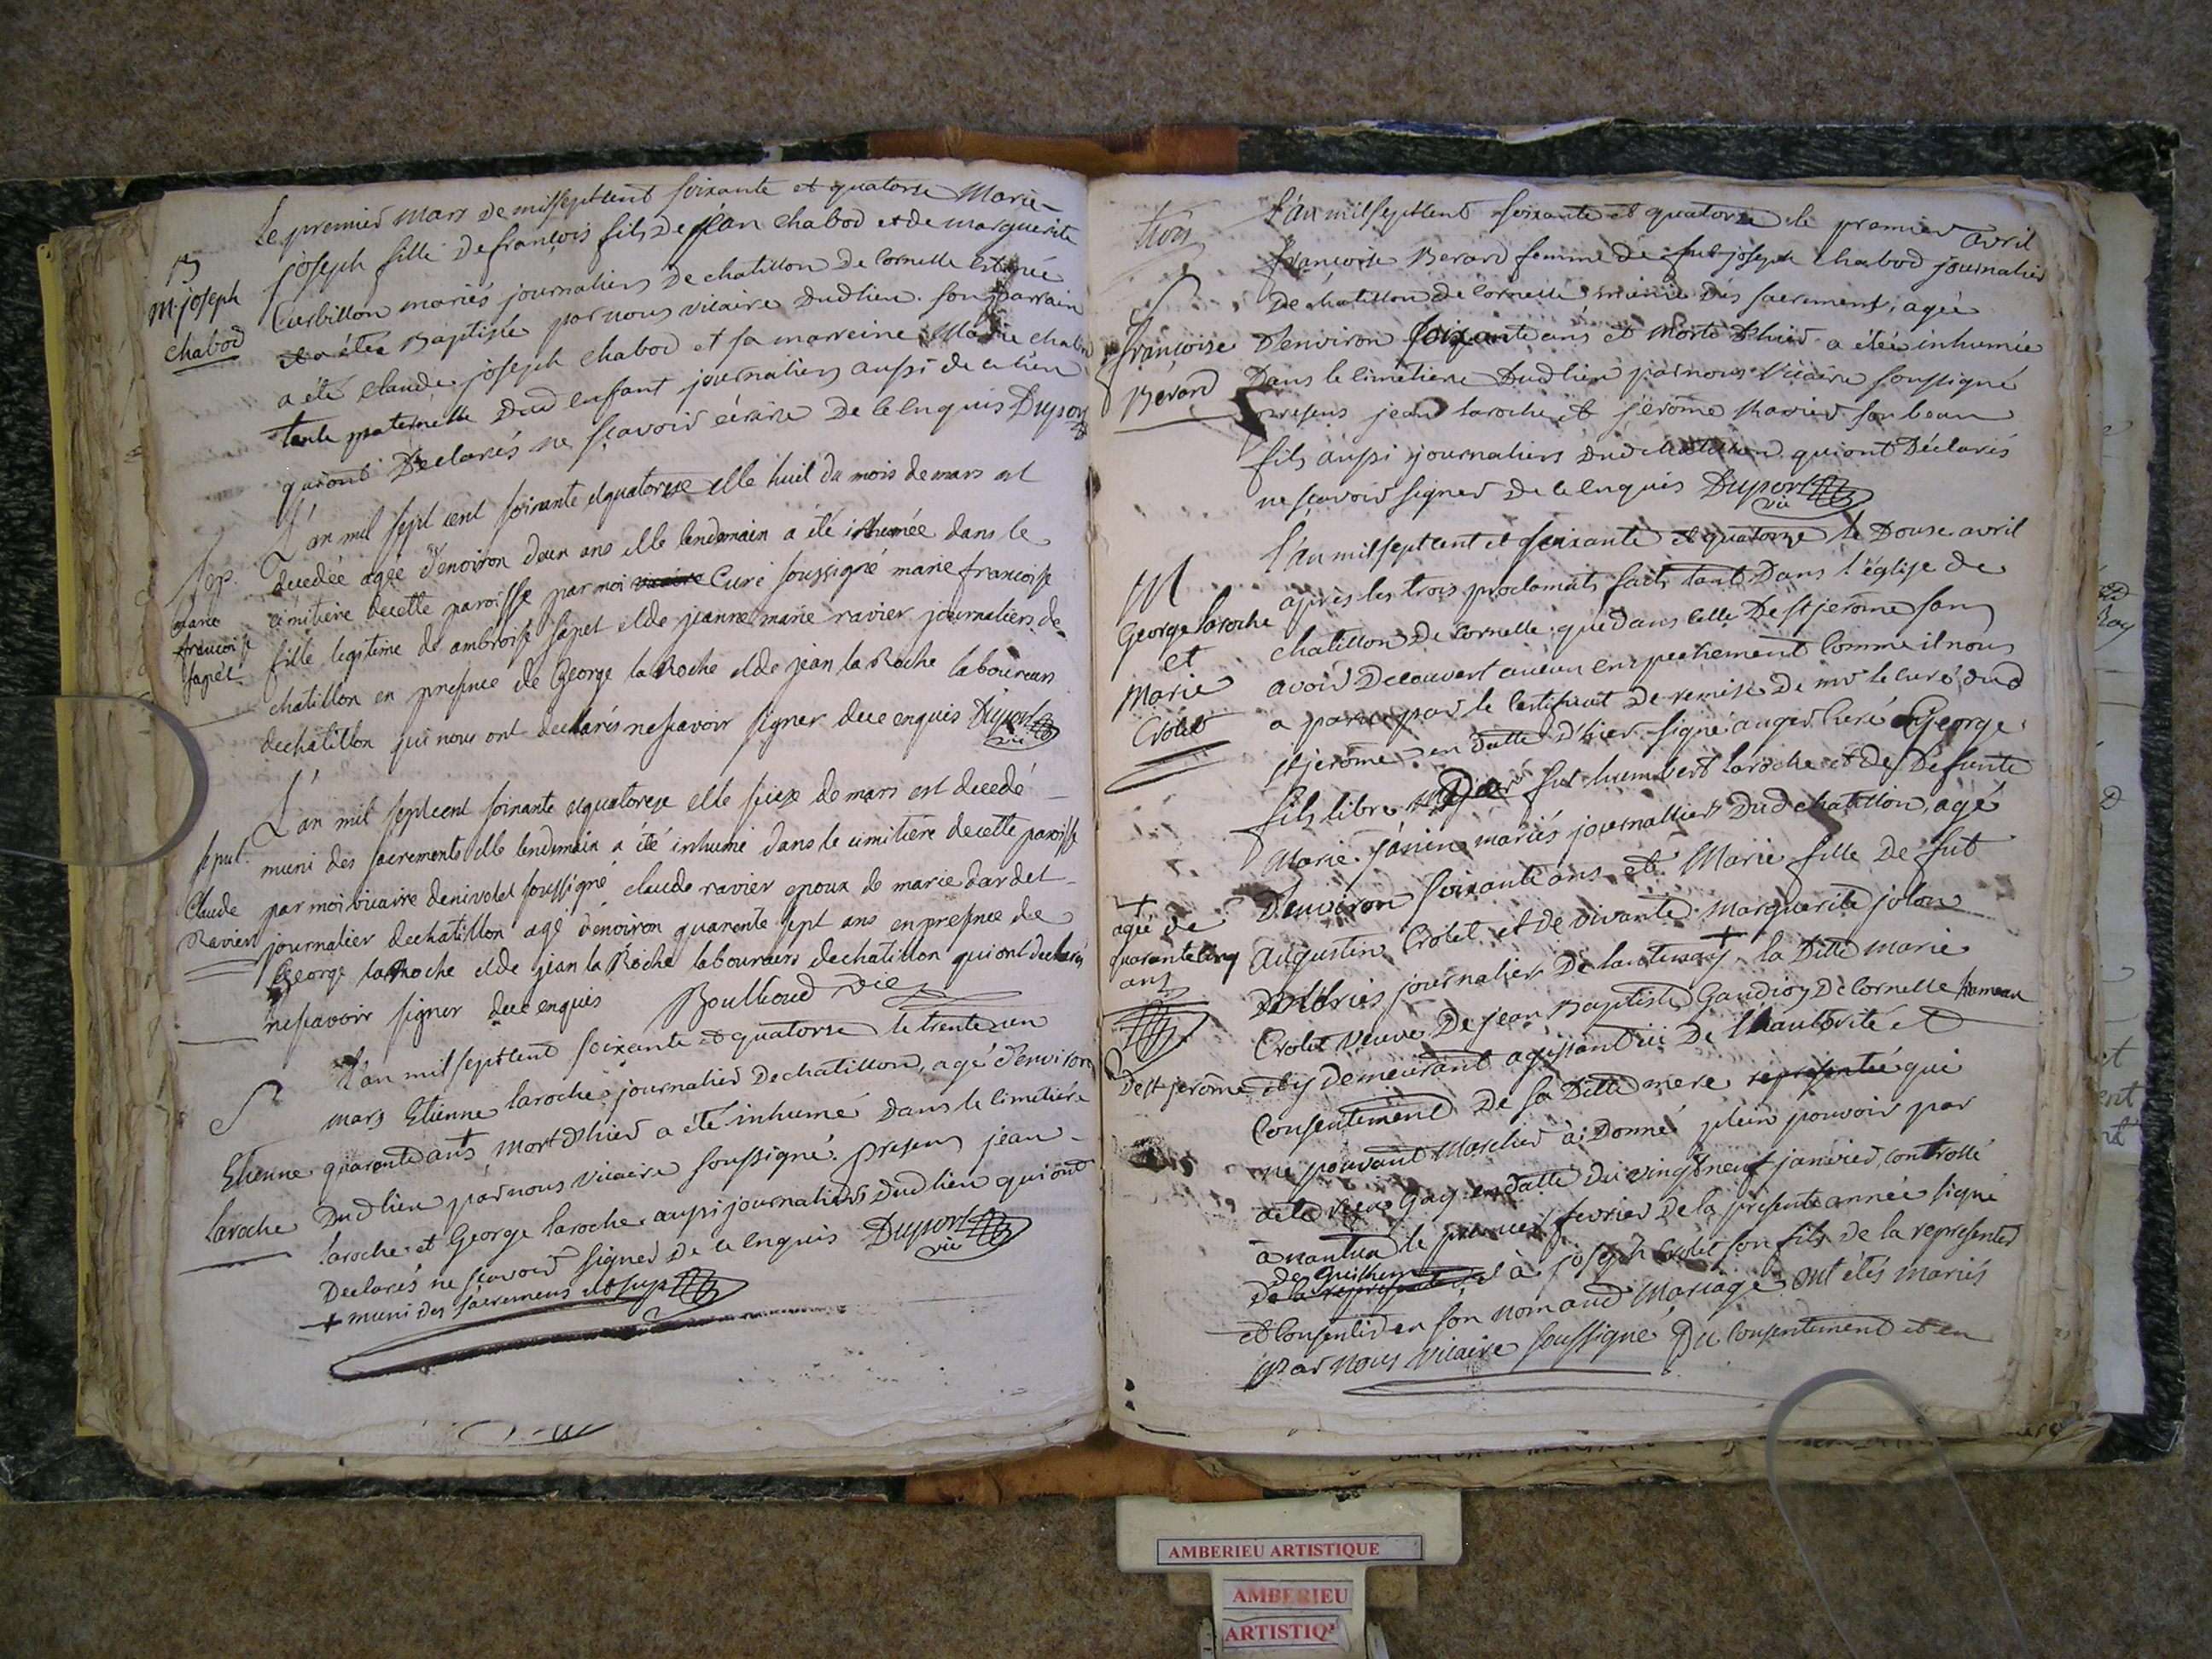 Le premier mars de mil sept cent soixante et quatorse Marie-
B
joseph fille de françois fils de jean chabod et de marguerite
M. joseph
chabod
Curbillon mariés journaliers de chatillon de Cornelle est née
et a étée Baptisée par nous vicaire dud lieu. son parrain
a été Claude joseph chabod et sa marreine Marie chabod
tante paternelle dud enfant journaliers aussi de ce lieu
qui ont Declarés ne sçavoir écrire de ce Enquis Duport
L'an mil sept cent soixante et quatorze et le huit du mois de mars est
Sep.
marie
françoise
sapet
decedée agée d'environ deux ans et le lendemain a été inhumée dans le
cimitiere de cette paroisse par moi vicaire Curé soussigné marie francoise
fille legitime de ambroise sapet et de jeanne marie ravier journaliers de
chatillon en presence de George la Roche et de jean la Roche laboureurs
de chatillon qui nous ont declarés ne scavoir signer de ce enquis Duport
vic
L'an mil sept cent soixante et quatorze et le seize de mars est decedé
sepul.
Claude
Ravier
muni des sacrements et le lendemain a été inhumé dans le cimitiere de cette paroisse
par moi vicaire de nivolet soussigné claude ravier epoux de marie dardet
journalier de chatillon agé d'environ quarente sept ans en presence de
George la Roche et de jean la Roche laboureurs de chatillon qui ont declarés
ne scavoir signer de ce enquis Boullioud vic
L'an mil sept cent soixante et quatorse le trente un
S
Etienne
laroche
mars Etienne laroche journalier de chatillon, agé d'environ
quarante ans + mort d'hier a été inhumé dans le cimetiére
Dud lieu par nous vicaire soussigné. presens jean
laroche et George laroche aussi journaliers dud lieu qui ont
Declarés ne sçavoir signer De ce Enquis Duport
vic
+ muni des sacremens
trois
L'an mil sept cent soixante et quatorse et le premier avril
S
françoise
Berard
françoise Berard femme de fut joseph chabod journalier
De chatillon de Cornelle munie des sacrement, agée
D'environ soixante ans et Morte d'hier a étée inhumée
Dans le cimetiere dud lieu par nous vicaire soussigné
presens jean laroche et jerome Ravier son beau
fils aussi journaliers dud chatillon qui ont Déclarés
ne sçavoir signer de ce Enquis Duport
vic
L'an mil sept cent et soixante et quatorze le Douse avril
M
George laroche
et
Marie
Crolet
après les trois proclamats faits tant Dans l'église de
chatillon de Cornelle que dans celle De st jerome sans
avoir Decouvert aucun enpechement Comme il nous
a paru par le Certificat de remise De mr le curé dud
st jerome en datte d'hier signé auger Curé George
fils libre de fut humbert laroche et de Defunte
Marie janin mariés journalliers Dud chatillon, agé
D'environ soixante ans et Marie fille De fut
+
agée de
quarante cinq
ans
Augustin Crolet et de vivante Marguerite jolon
mariés journalier De + la Ditte marie
Crolet veuve De jean Baptiste Gaudioz De Cornelle hameau
De st jerome et y demeurant agissant ici De l'hautorité et
Consentement De sa Ditte mere representée qui
ne pouvant Marcher à Donné plein pouvoir par
acte Gay en datte du vingt neuf janvier, controllé
à nantua le premier fevrier De la presente année signé
de Guilhem
De la representer et à joseph Crolet son fils de la representer
et Consentir en son nom aud Mariage. ont étés mariés
par nous vicaire soussigné Du Consentement et en
AMBERIEU ARTISTIQUE
AMBERIEU
ARTISTIQ